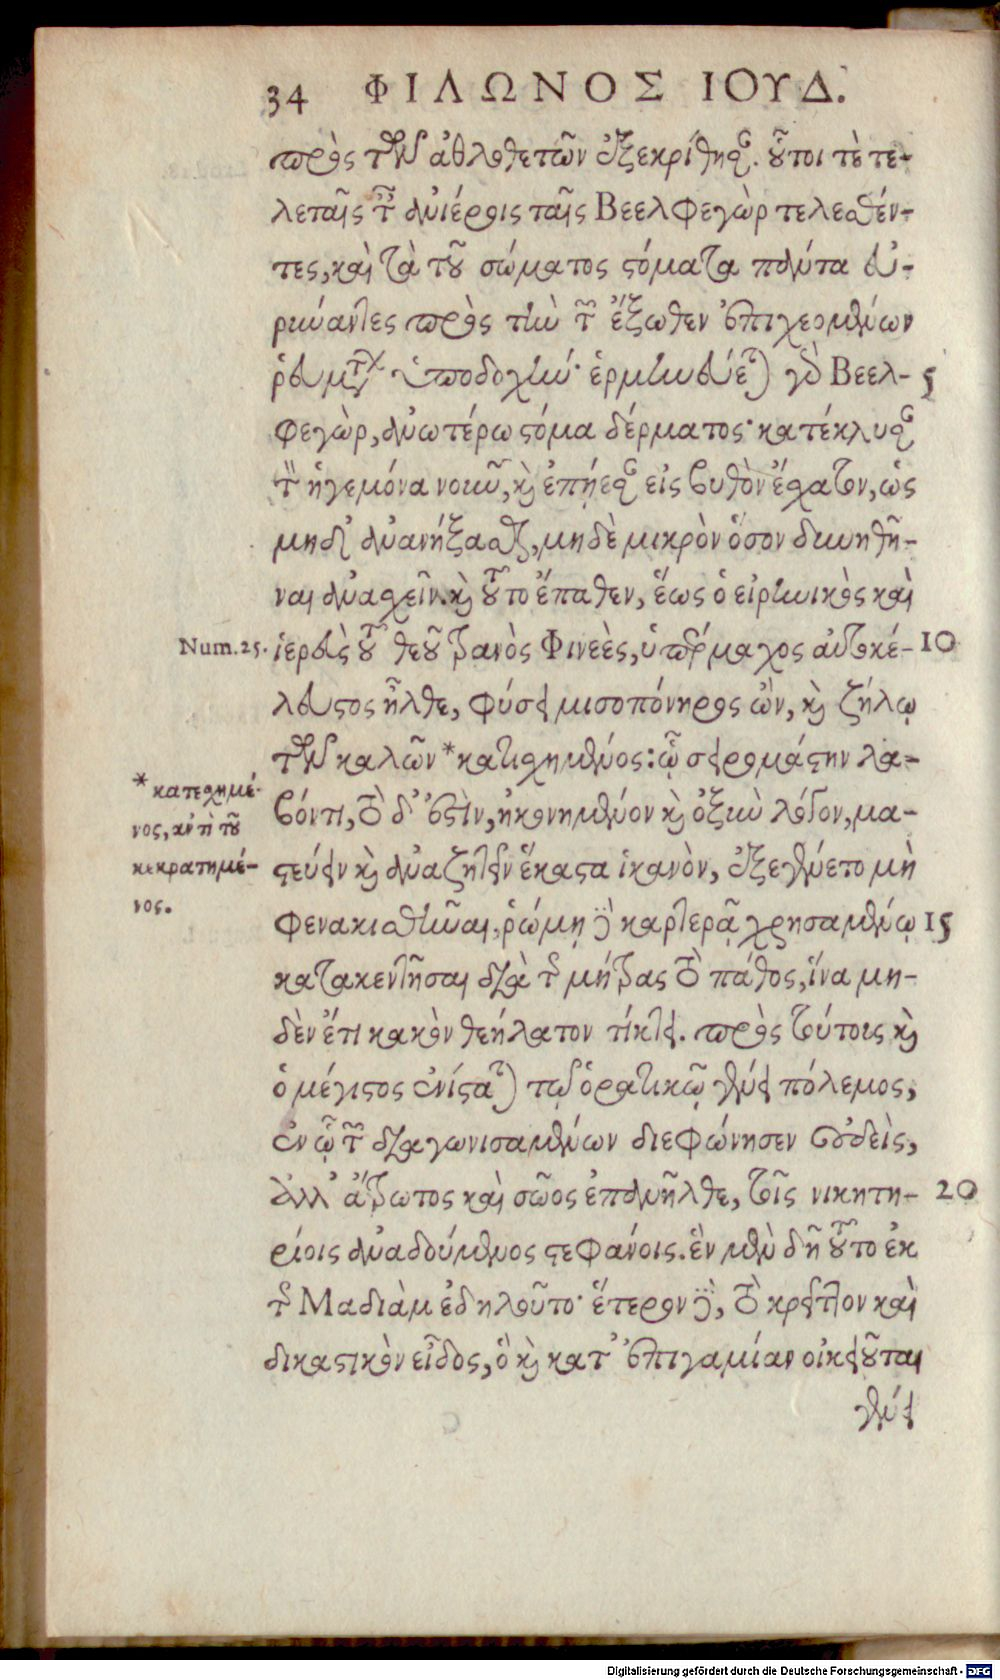 34 ΦΙΛΩΝΟΣ ΙΟΥΔ.
πρὸς τῶν ἀθλοθετῶν ἐξεκρίθησαν. οὗτοι τὲ τε-
λεταῖς τῶν ἀνιέροις ταῖς Βεελφεγὼρ τελεσθέν-
τες, καὶ τὰ τοῦ σώματος στόματα πάντα εὐ-
ρυύαντες πρὸς τὴν τῶν ἔξωθεν ἐπιχεομένων
ῥευμάτων ὑποδοχήν· ἑρμηνεύεται γὰρ Βεελ- 5
φεγὼρ, ἀνωτέρω στόμα δέρματος· κατέκλυσαν
τὸν ἡγεμόνα νοῦν, καὶ ἐπήεσαν εἰς βυθὸν ἔσχατον, ὡς
μηδ' ἀνανήξασθαι, μηδὲ μικρὸν ὅσον δυνηθῆ-
ναι ἀνασχεῖν. καὶ τοῦτο ἔπαθεν, ἕως ὁ εἰρηνικὸς καὶ
Num.25. ἱερεὺς τοῦ θεοῦ τρανὸς Φινεὲς, ὑπέρμαχος αὐτοκέ- 10
λευστος ἦλθε, φύσει μισοπόνηρος ὢν, καὶ ζήλῳ
τῶν καλῶν *κατισχημένος: ᾧ σειρομάστην λα-
* κατεσχημέ-
νος, ἀντὶ τοῦ
κεκρατημέ-
νος.
βόντι, τὸ δ' ἐστὶν, ἠκονημένον καὶ ὀξὺν λόγον, μα-
στεύειν καὶ ἀναζητεῖν ἕκαστα ἱκανὸν, ἐξεγένετο μὴ
φενακισθῆναι, ῥώμῃ δὲ καρτερᾷ χρησαμένῳ 15
κατακεντῆσαι διὰ τῆς μήτρας τὸ πάθος, ἵνα μη-
δὲν ἔτι κακὸν θεήλατον τίκτει. πρὸς τούτοις καὶ
ὁ μέγιστος ἐνίσταται τῷ ὁρατικῷ γένει πόλεμος,
ἐν ᾧ τῶν διαγωνισαμένων διεφώνησεν οὐδεὶς,
ἀλλ' ἄτρωτος καὶ σῶος ἐπανῆλθε, τοῖς νικητη- 20
ρίοις ἀναδούμενος στεφάνοις. ἓν μὲν δὴ τοῦτο ἐκ
τῆς Μαδιὰμ ἐδηλοῦτο· ἕτερον δὲ, τὸ κρεῖττον καὶ
δικαστικὸν εἶδος, ὃ καὶ κατ' ἐπιγαμίαν οἰκειοῦται
γένει
Digitalisierung gefördert durch die Deutsche Forschungsgemeinschaft - DFG